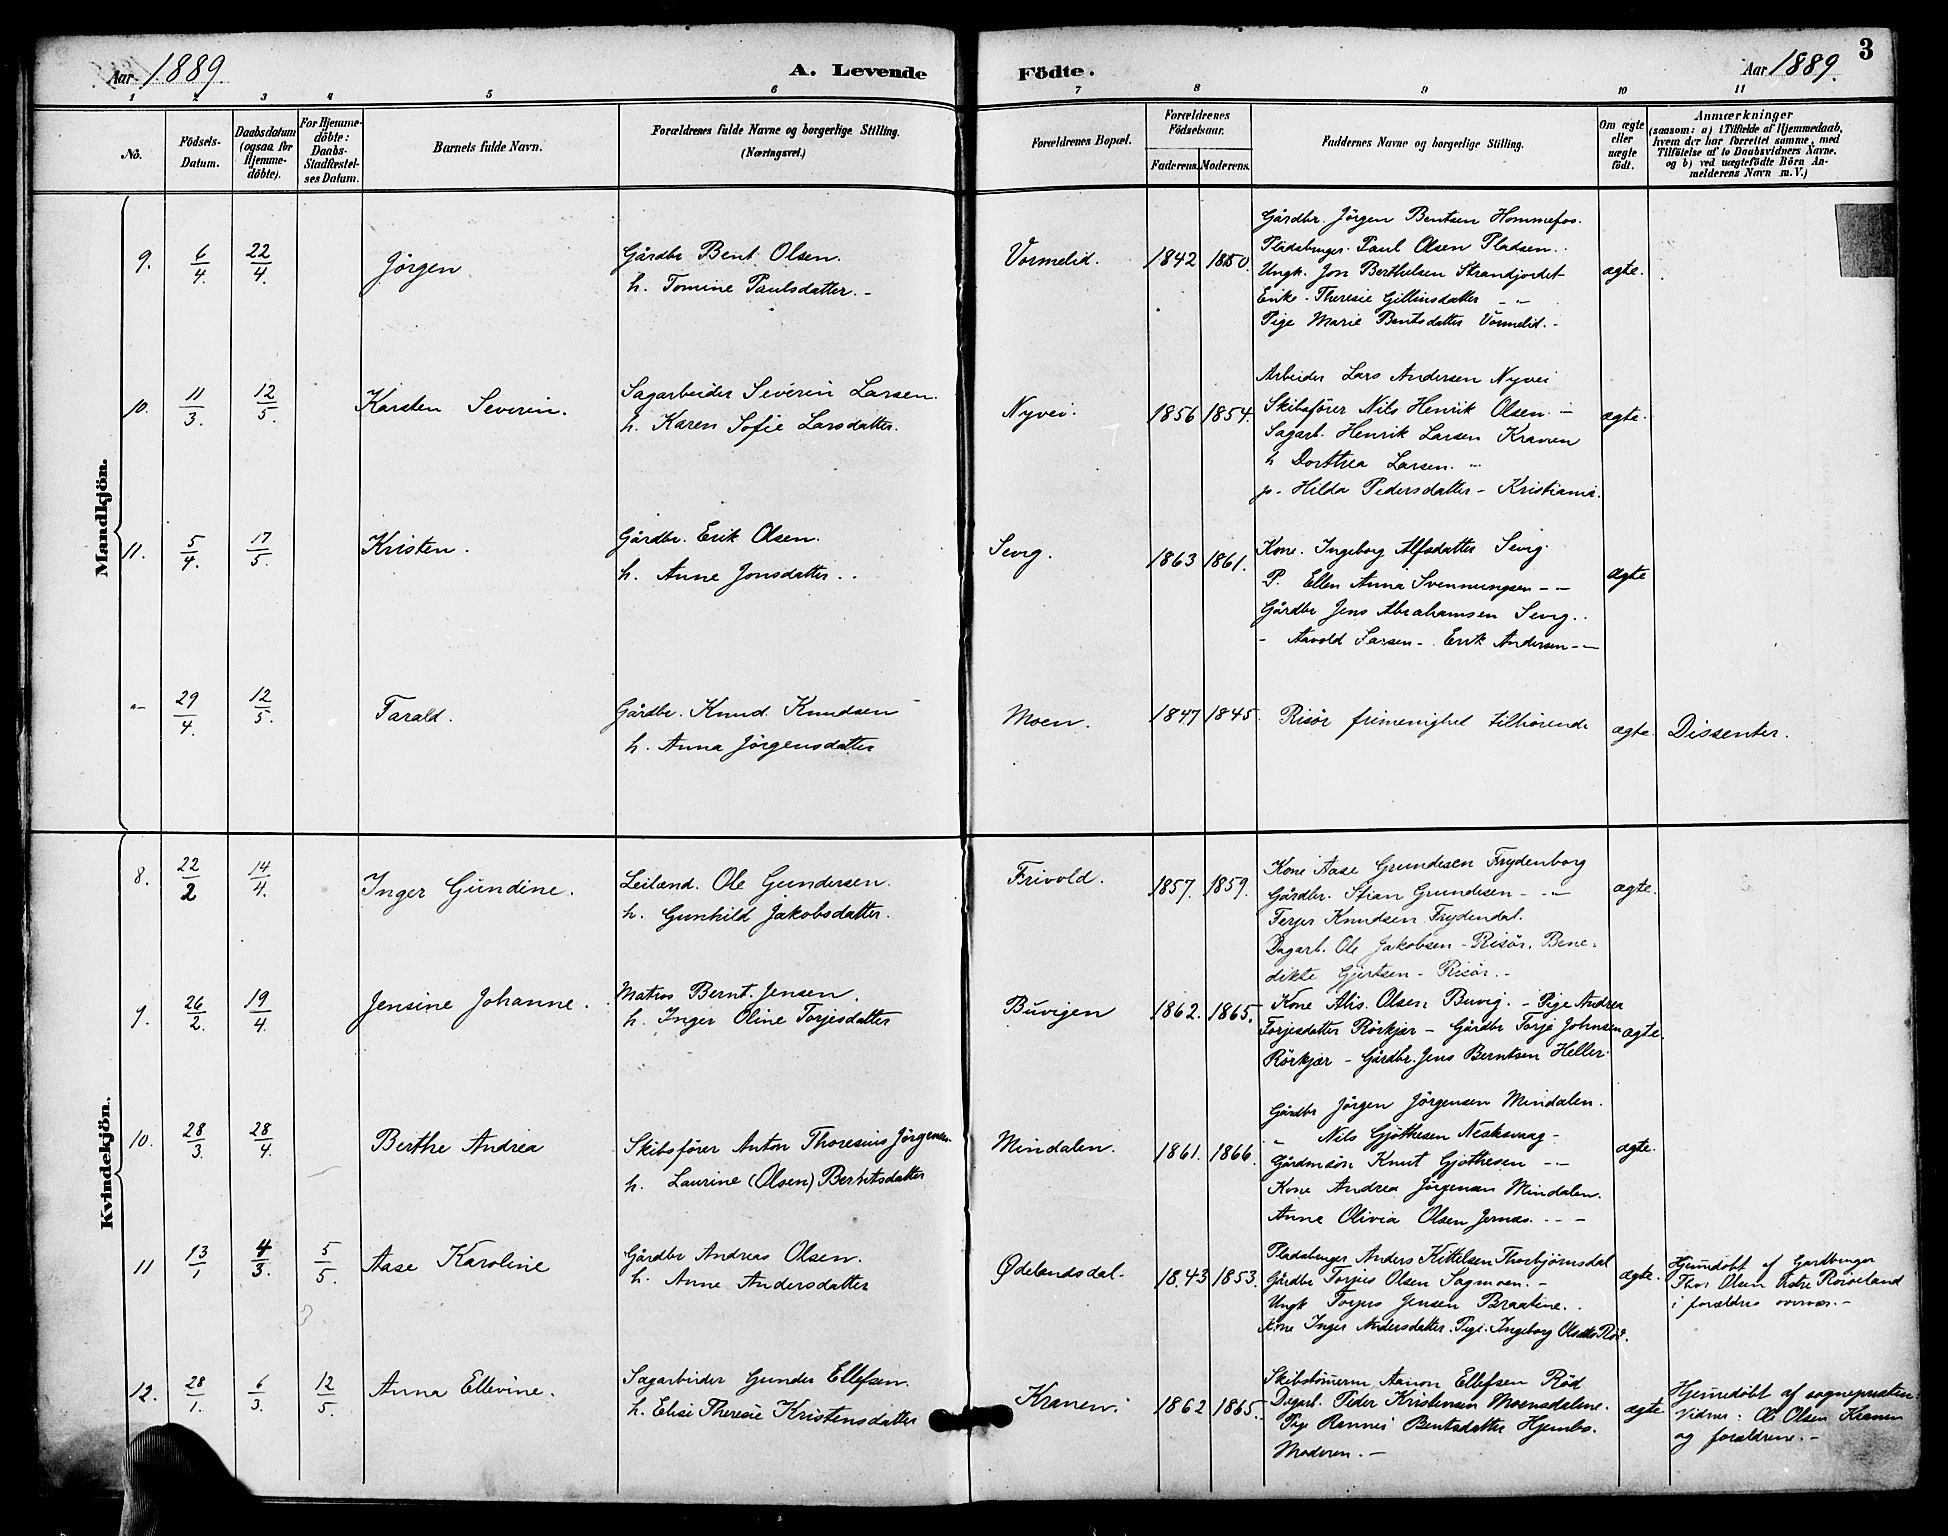 Aar 1889
A. Levende Födte.
Aar 1889.
3
1 2 3 4 5 6 7 8 9 10 11
No.
Födsels-
Datum.
Daabsdatum
(ogsaa for
Hjemme-
döbte).
For Hjemme-
döbte:
Daabs-
Stadfæstel-
ses Datum.
Barnets fulde Navn.
Forældrenes fulde Navne og borgerlige Stilling.
(Næringsvei.)
Forældrenes Bopæl.
Forældrenes
Födselsaar.
Faderens. Moderens.
Faddernes Navne og borgerlige Stilling.
Om ægte
eller
uægte
födt.
Anmærkninger
(saasom: a) i Tilfælde af Hjemmedaab,
hvem der har forrettet samme, med
Tilföielse af to Daabsvidners Navne,
og b) ved uægtefödte Börn An-
melderens Navn m. V.)
Mandkjön.
9. 6/4. 22/4. Jörgen
Gårdbr Bent Olsen.
h. Tomine Paulsdatter. -
Vormelid. 1842 1850.
Gårdbr. Jörgen Bentsen Hommefos.
Pladsbruger. Paul Olsen Pladsen.
Ungk. Jon Berthelsen Strandjordet
Enke. Theresie Gillinsdatter - " -
Pige Marie Bentsdatter Vormelid. -
ægte.
10. 11/3. 12/5. Karsten Severin.
Sagarbeider Severin Larsen.
h. Karen Sofie Larsdatter.
Nyvei. 1856 1854.
Arbeider Lars Andersen Nyvei
Skibsfører Nils Henrik Olsen. -
Sagarb. Henrik Larsen Kranen
h Dorthea Larsen. "
p. Hilda Pedersdatter - Kristiania.
ægte.
11. 5/4. 17/5. Kristen.
Gårdbr. Erik Olsen.
h. Anne Jonsdatter. .
Sevig. 1863 1861.
Kone. Ingeborg Alfsdatter Sevig.
P. Ellen Anna Svenningsen - -
Gårdbr Jens Abrahamsen Sevig. .
- Aavold Larsen - Erik Andersen - -
ægte
"- 29/4. 12/5. Tarald.
Gårdbr. Knud Knudsen
h. Anna Jörgensdatter
Moen. 1847 1845.
Risør frimenighed tilhørende
ægte. Dissenter.
Kvindekjön.
8. 22/2 14/4. Inger Gundine.
Leiland. Ole Gundersen.
h. Gunhild Jakobsdatter.
Frivold. 1857. 1859.
Kone Aase Grundesen Frydenborg
Gårdbr. Stian Grundesen - " -
Terjer Knudsen Frydendal.
Dagarb. Ole Jakobsen - Risør. Bene-
dikte Gjertsen - Risør. -
ægte.
9. 26/2. 19/4. Jensine Johanne.
Matros Bernt Jensen.
h. Inger Oline Torjesdatter
Buvigen 1862. 1865.
Kone Alis. Olsen Buvig. - Pige Andrea
Torjesdatter Rörkjær - Gårdbr Torje Johnsen
Rörkjær - Gårdbr. Jens Berntsen Heller.
ægte.
10. 28/3. 28/4. Berthe Andrea
Skibsfører Anton Thoresius Jörgensen
h. Laurine (Olsen) Berntsdatter
Mindalen. 1861. 1866.
Gårdbr Jörgen Jörgensen Mindalen.
" Nils Gjöthesen Nesksvaag -
Gårdmsön Knut Gjöthesen - -
Kone Andrea Jörgensen Mindalen.
Anne Olivia Olsen Jernæs. - - -
ægte.
11 13/1 4/3. 5/5. Aase Karoline
Gårdbr Andreas Olsen.
h. Anne Andersdatter
Ødelandsdal. 1843 1853.
Pladsbruger Anders Kittelsen Thorbjørnsdal
Gårdbr Torjus Olsen Sagmoen. -
Ungk Torjus Jensen Braatene.
Kone Inger Andersdatter. Pige. Ingeborg Olsdtr Rød.
ægte.
Hjemdøbt af Gardbruger
Thor Olsen Østre Røiseland
i forældres overvær. -
12. 28/1. 6/3. 12/5. Anna Ellevine.
Sagarbeider Gunder Ellefsen.
h. Elise Theresie Kristensdatter
Kranen. 1862 1865.
Skibstömerm Aanon Ellefsen Rød
Dagarb. Peder Kristensen Moensdalene.
Pige Rannei Bentsdatter Hjembo.
Moderen. -
ægte
Hjemmedøbt af sognepresten.
Vidner: Ole Olsen Kranen
og forældrene. -